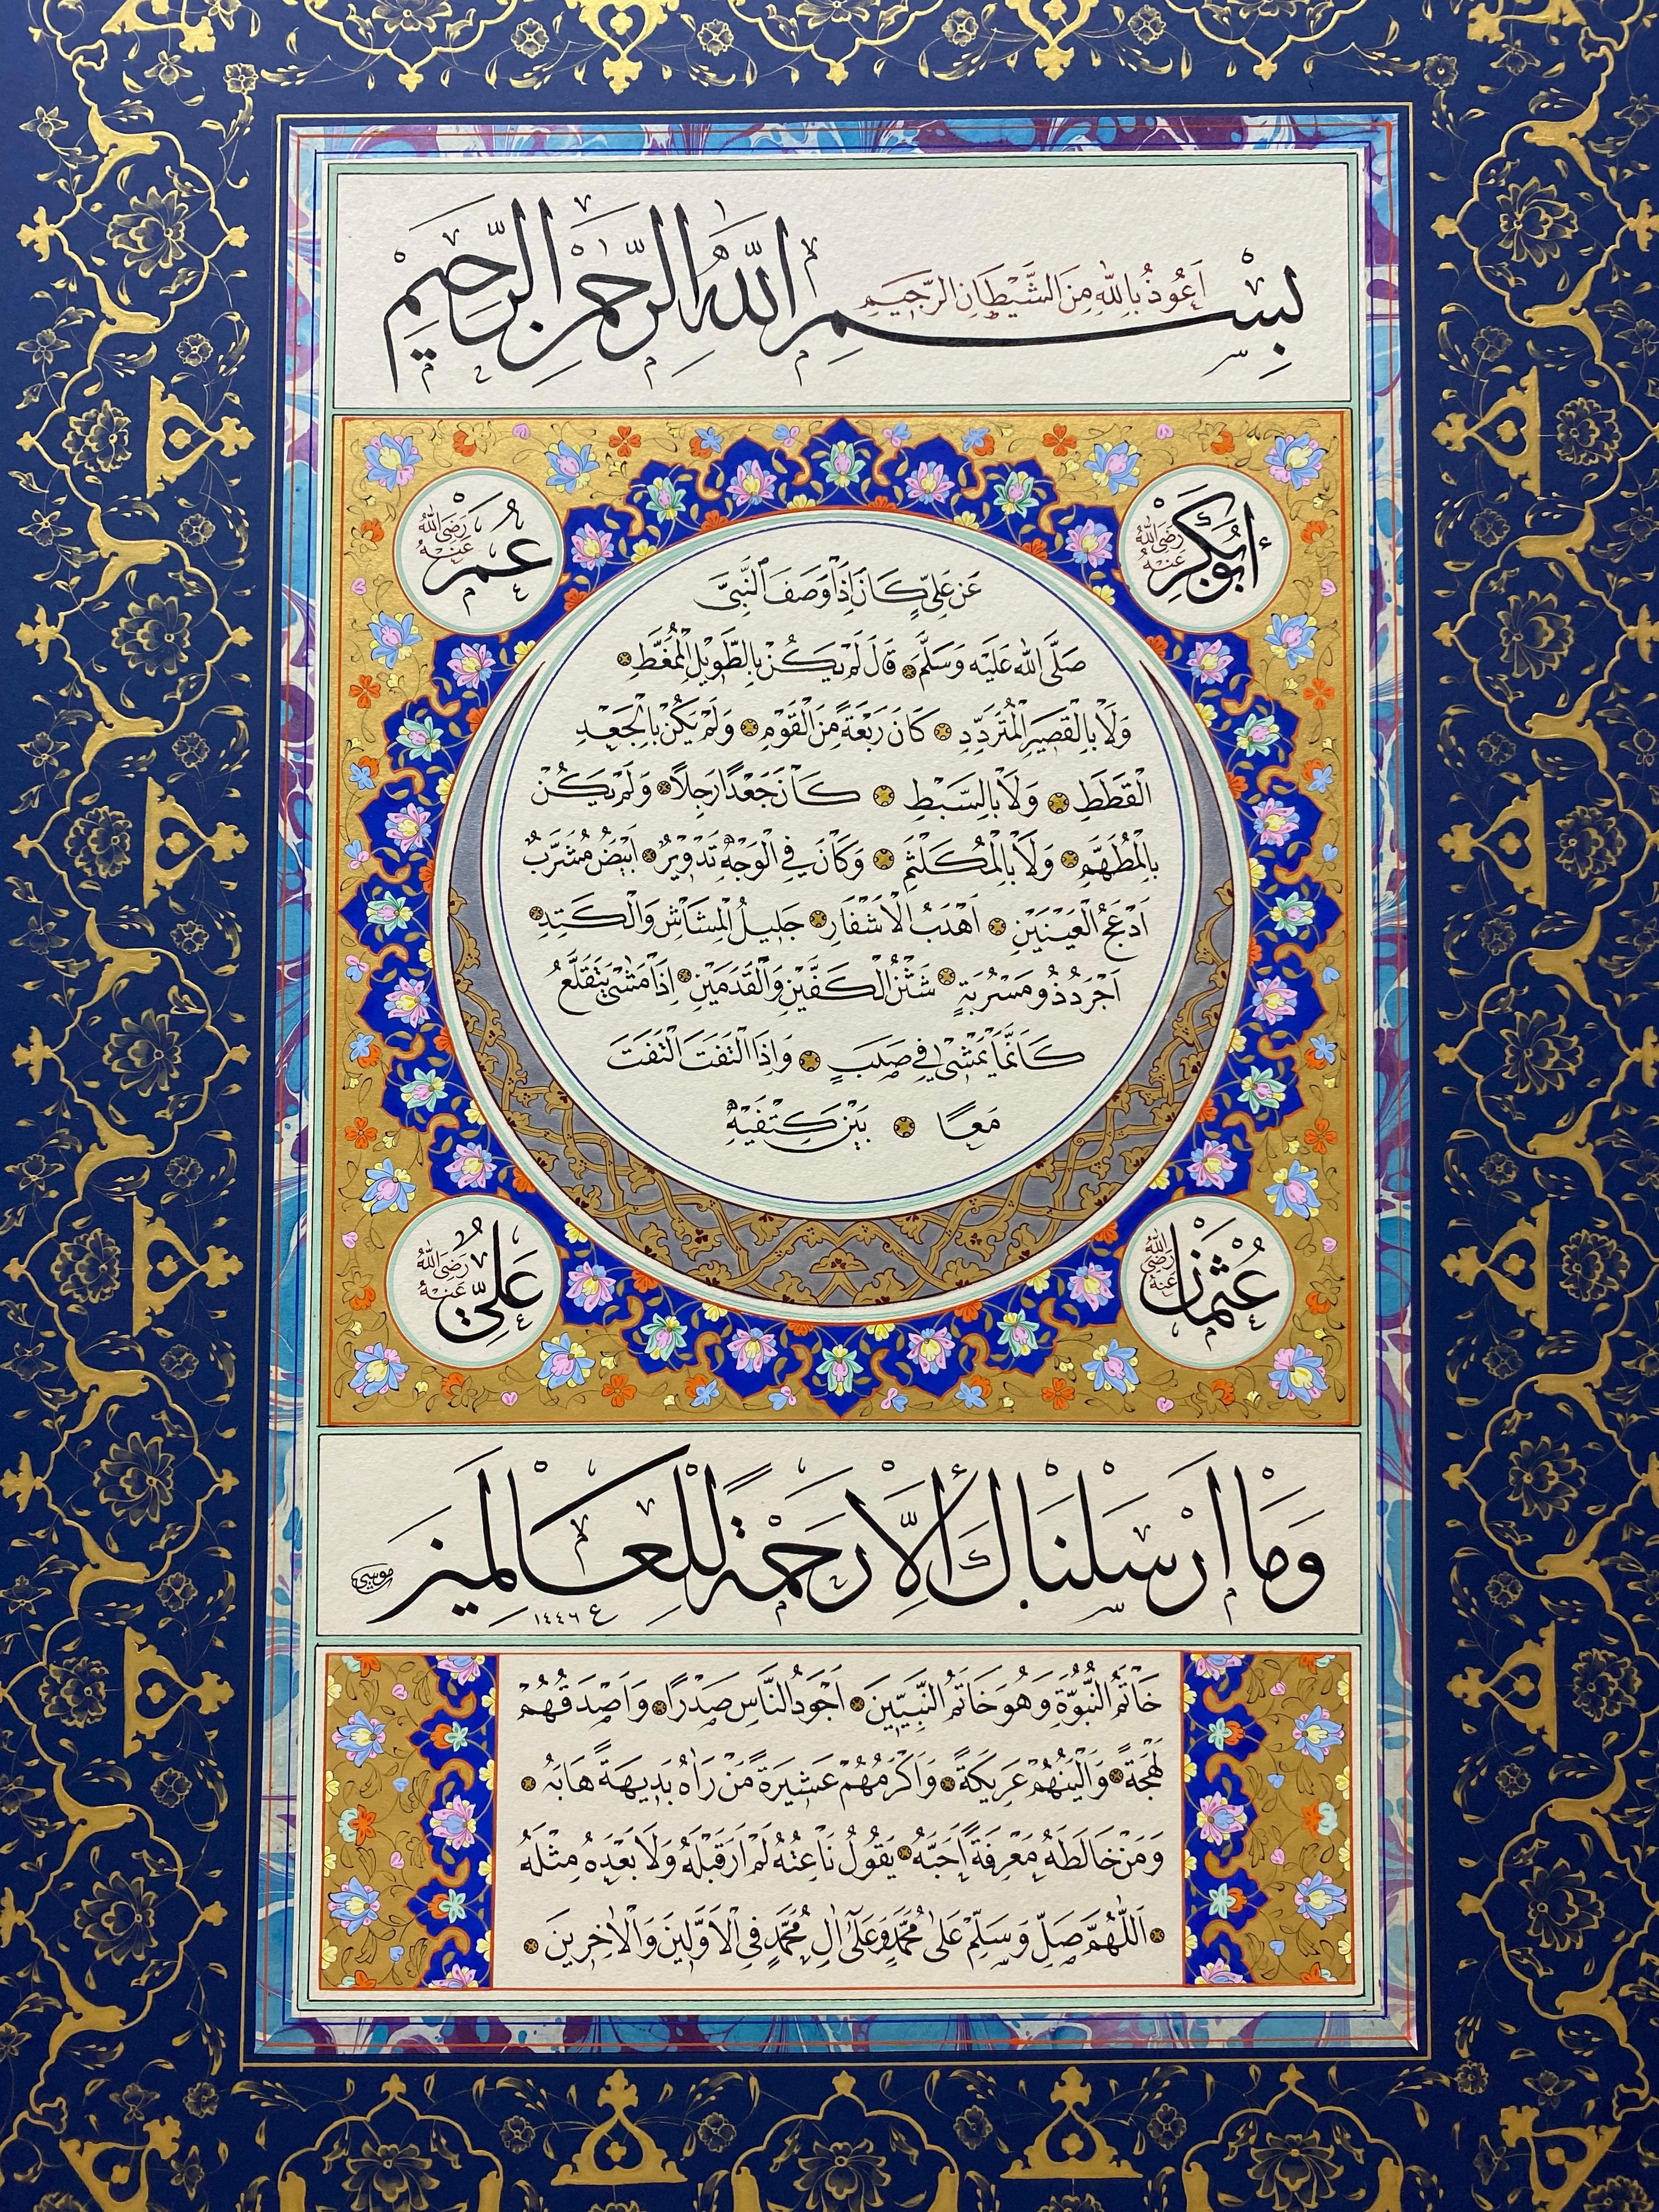 بِسْمِ اللّٰهِ الرَّحْمٰنِ الرَّحِيمِ
اَعُوذُ بِاللّٰهِ مِنَ الشَّيْطَانِ الرَّجِيمِ
أَبُوبَكْرٍ رَضِيَ اللّٰهُ عَنْهُ
عُمَرْ رَضِيَ اللّٰهُ عَنْهُ
عَنْ عَلِيٍّ كَانَ اِذَا وَصَفَ النَّبِيَّ
صَلَّى اللّٰه عَلَيْه وَسَلَّمَ قَالَ لَمْ يَكُنْ بِالطَّوِيْلِ الْمُمَّغِطِ
وَلَاْ بِالْقَصِيْرِ الْمُتَرَدِّدِ كَانَ رَبْعَةً مِنَ الْقَوْمِ وَلَمْ يَكُنْ بِالْجَعْدِ
الْقَطَطِ وَلَاْ بِالسَّبْطِ كَانَ جَعْدًا رَجِلًا وَلَمْ يَكُنْ
بِالْمُطَهَّمِ وَلَاْ بِالْمُكَلْثَمِ وَكَانَ فِي الْوَجْهِ تَدْوِيْرٌ اَبْيَضُ مُشَرَّبٌ
اَدْعَجُ الْعَيْنَيْنِ اَهْدَبُ الْاَشْفَارِ جَلِيلُ الْمِشَاشِ وَالْكَتِدِ
اَجْرَدُ ذُو مَسْرُبَةٍ شَثْنُ الْكَفَّيْنِ وَالْقَدَمَيْنِ اِذَا مَشٰى يَتَقَلَّعُ
كَاَنَّمَا يَمْشِي فِي صَبَبٍ وَاِذَا الْتَفَتَ الْتَفَتَ
مَعًا بَيْنَ كَتِفَيْهِ
عُثْمَانْ رَضِيَ اللّٰهُ عَنْهُ
عَلِيّ رَضِيَ اللّٰهُ عَنْهُ
وَمَا اَرْسَلْنَاكَ اِلَّا رَحْمَةً لِلْعَالَمِينَ
موسى
١٤٤٦
خَاتَمُ النُّبُوَّةِ وَهُوَ خَاتَمُ النَّبِيّينَ اَجْوَدُ النَّاسِ صَدْرًا وَاَصْدَقُهُمْ
لَهْجَةً وَاَلْيَنُهُمْ عَرِيكَةً وَاَكْرَمُهُمْ عَشِيرَةً مَنْ رَاٰهُ بَدِيهَةً هَابَهُ
وَمَنْ خَالَطَهُ مَعْرِفَةً اَحَبَّهُ يَقُولُ نَاعِتُهُ لَمْ اَرَ قَبْلَهُ وَلَا بَعْدَهُ مِثْلَهُ
اَللّٰهُمَّ صَلِّ وَسَلِّمْ عَلٰى مُحَمَّدٍ وَعَلٰى اٰلِ مُحَمَّدٍ فِي الْاَوَّلِينَ وَالْاٰخِرِينَ